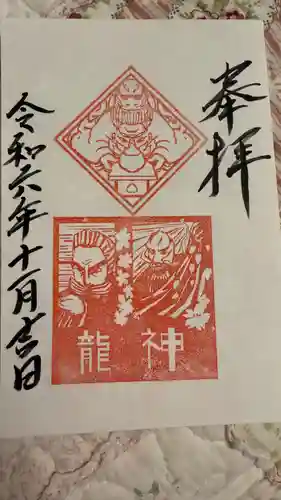 奉拝
龍神
令和六年十一月吉日